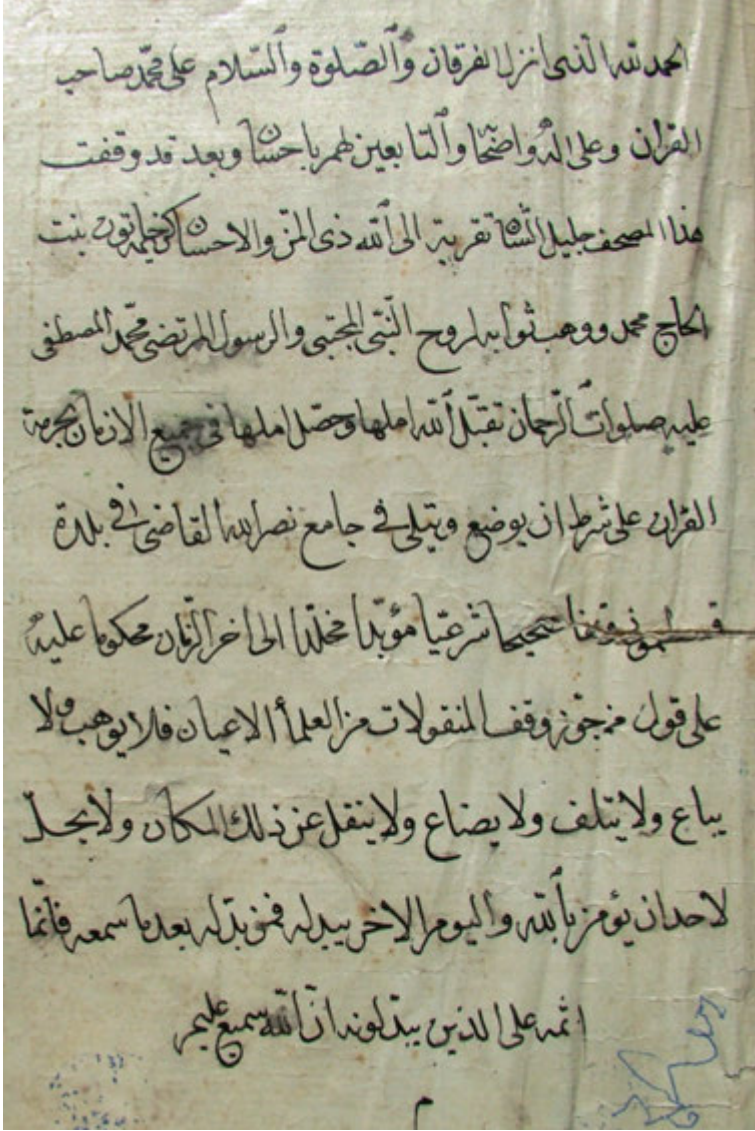 الحمد لله الذى انزل الفرقان والصلوة والسلام على محمد صاحب
القران وعلى اله واضحا والتابعين لهم باحسان وبعد قد وقفت
هذا المصحف جليل الشان تقربة الى الله ذى المن والاحسان خاتون بنت
الحاج محمد ووهب ثوابه لروح النبى المجتبى والرسول المرتضى محمد المصطفى
عليه صلوات الرحمان تقبل الله املها وحصل املها فى جميع الازمان بحرمة
القران على شرط ان يوضع ويتلى فى جامع نصر الله القاضى فى بلدة
قسطمونى وقفا صحيحا شرعيا مؤبدا مخلدا الى اخر الزمان محكوما عليه
على قول من جوز وقف المنقولات من العلمأ الاعيان فلا يوهب ولا
يباع ولا يتلف ولا يضاع ولا ينقل عن ذلك المكان ولا يحل
لاحد ان يؤمن بالله واليوم الاخر يبدله فمن بدله بعد ما سمعه فانما
اثمه على الذين يبدلونه ان الله سميع عليم
م